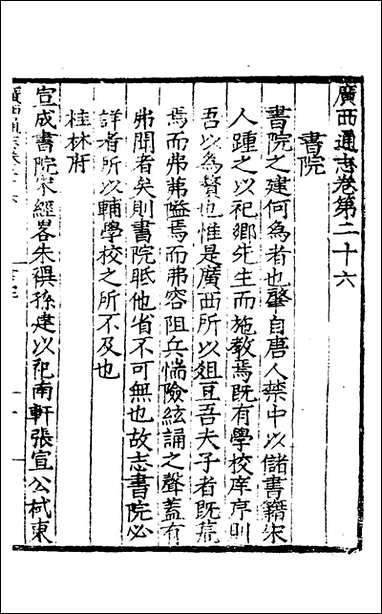 廣西通志卷第二十六
書院
書院之建何為者也肇自唐人禁中以儲書籍宋
人踵之以祀鄉先生而施教焉既有學校庠序則
吾以為贅也惟是廣西所以俎豆吾夫子者既荒
焉而弗弗隘焉而弗容阻兵惴險絃誦之聲蓋有
弗聞者矣則書院眂他省不可無也故志書院必
詳者所以輔學校之所不及也
桂林府
宣成書院宋經畧朱禩孫建以祀南軒張宣公栻東